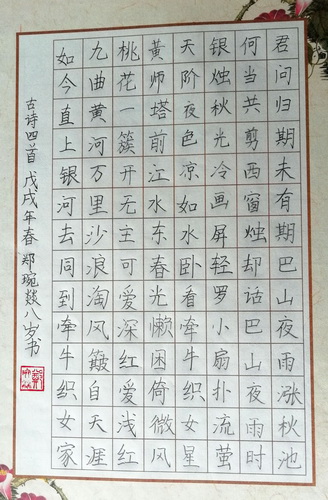 君问归期未有期巴山夜雨涨秋池
何当共剪西窗烛却话巴山夜雨时
银烛秋光冷画屏轻罗小扇扑流萤
天阶夜色凉如水卧看牵牛织女星
黄师塔前江水东春光懒困倚微风
桃花一簇开无主可爱深红爱浅红
九曲黄河万里沙浪淘风簸自天涯
如今直上银河去同到牵牛织女家
古诗四首 戊戌年春 郑琬燚八岁书